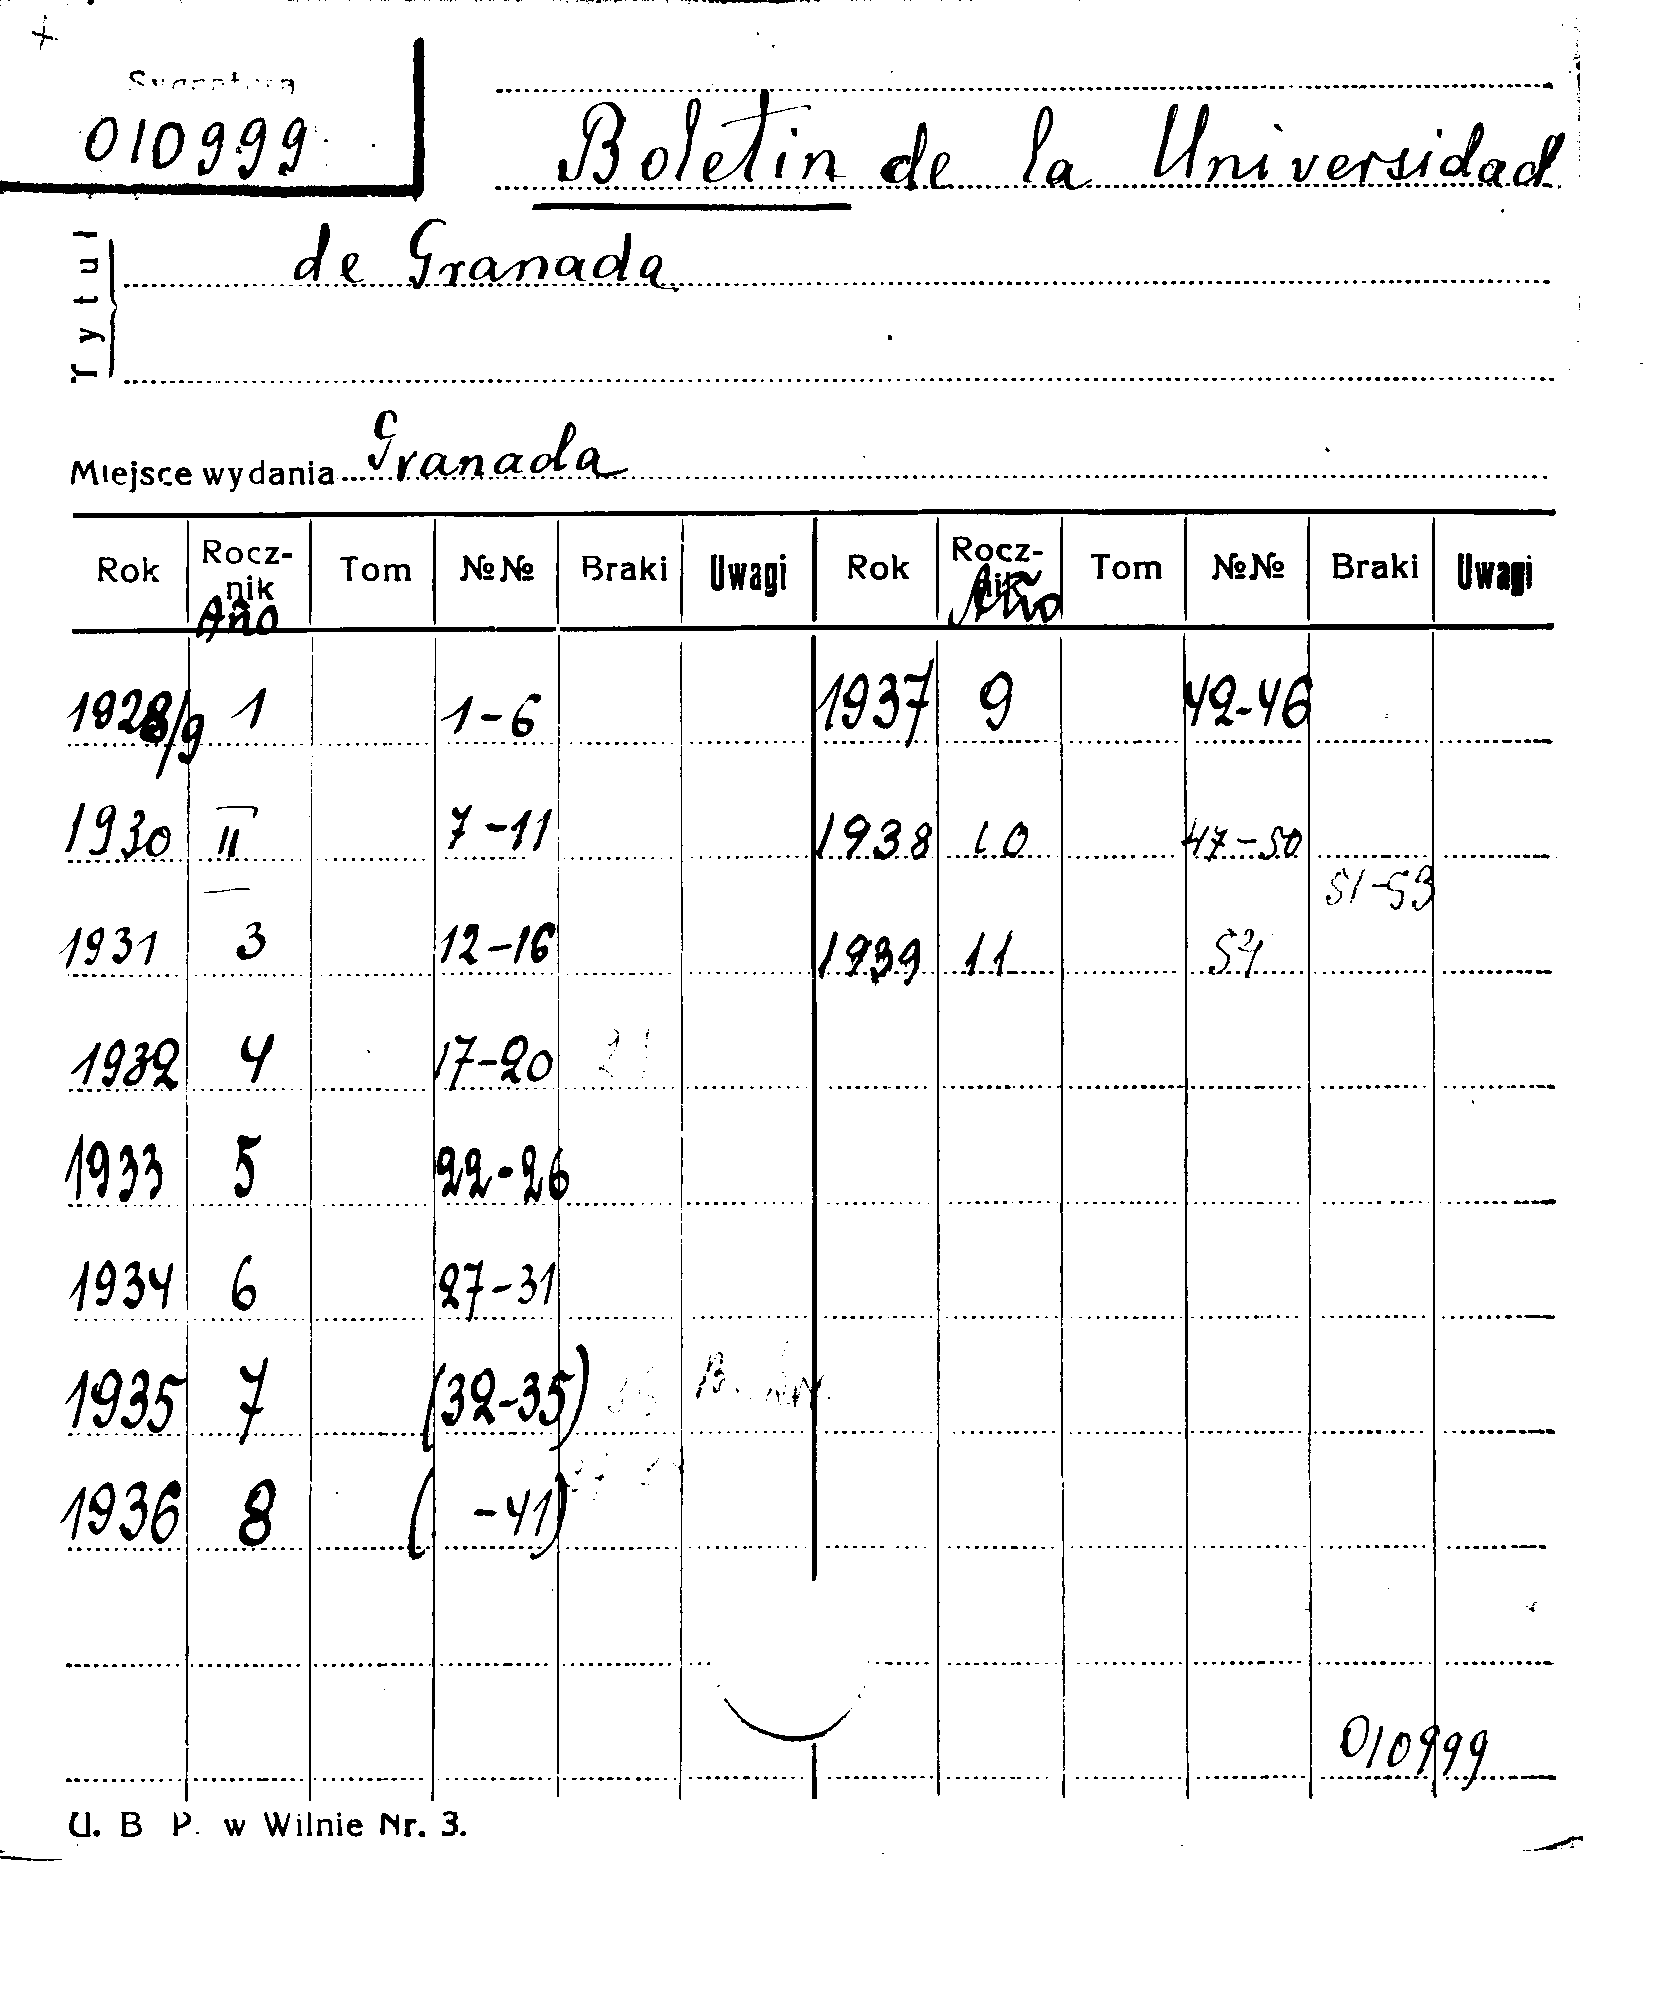 Sygnatura
010999
Boletin de la Universidad
de Granada
Tytuł
Miejsce wydania Granada
Rok Rocz- Tom №№ Braki Uwagi Rok Rocz- Tom №№ Braki Uwagi
nik nik
Año Año
1928/9 1 1-6 1937 9 42-46
1930 II 7-11 1938 10 47-50
51-53
1931 3 12-16 1939 11 54
1932 4 17-20 21
1933 5 22-26
1934 6 27-31
1935 7 (32-35)
1936 8 ( -41)
010999
U. B P. w Wilnie Nr. 3.